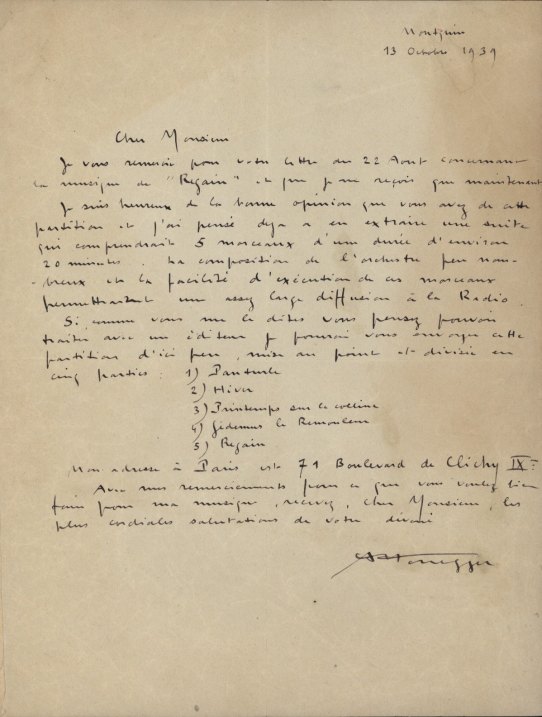 Montquin
13 Octobre 1939
Cher Monsieur
Je vous remercie pour votre lettre du 22 Aout concernant
la musique de "Regain" et que je ne reçois que maintenant
Je suis heureux de la bonne opinion que vous avez de cette
partition et j'ai pensé deja a en extraire une suite
qui comprendrait 5 morceaux d'une durée d'environ
20 minutes. La composition de l'orchestre peu nom-
-breux et la facilité d'exécution de ces morceaux
permettraient une assez large diffusion à la Radio.
Si, comme vous me le dites vous pensez pouvoir
traiter avec un éditeur je pourrai vous envoyer cette
partition d'ici peu, mise au point et divisée en
cinq parties : 1) Panturle
2) Hiver
3) Printemps sur la colline
4) Gédémus le Remouleur
5) Regain
Mon adresse à Paris est 71 Boulevard de Clichy IXe
Avec mes remerciements pour ce que vous voulez bien
faire pour ma musique, recevez, cher Monsieur, les
plus cordiales salutations de votre dévoué
AHonegger